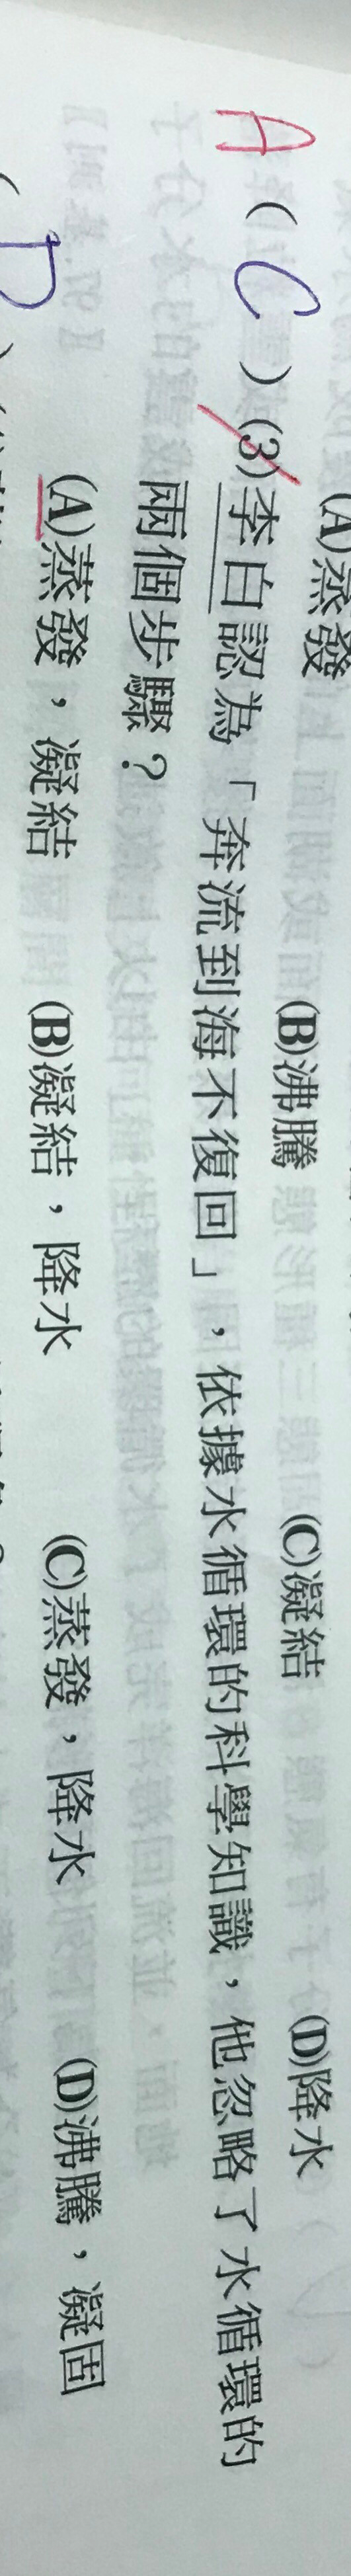 (A)蒸發 (B)沸騰 (C)凝結 (D)降水
A ( C ) (3)李白認為「奔流到海不復回」，依據水循環的科學知識，他忽略了水循環的
兩個步驟？
(A)蒸發，凝結 (B)凝結，降水 (C)蒸發，降水 (D)沸騰，凝固
( D )